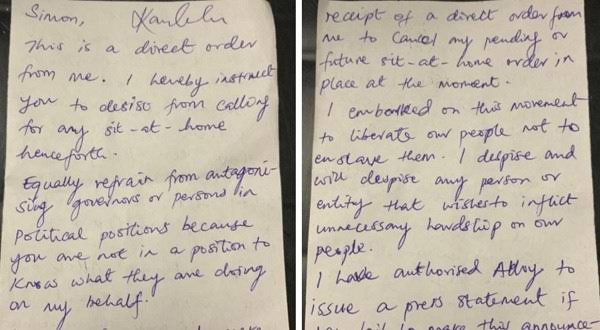 Simon,
This is a direct order
from me. I hereby instruct
you to desist from calling
for any sit-at-home
henceforth.
Equally refrain from antagoni-
sing governors or persons in
political positions because
you are not in a position to
know what they are doing
on my behalf.
receipt of a direct order from
me to cancel my pending or
future sit-at-home order in
place at the moment.
I embarked on this movement
to liberate our people not to
enslave them. I despise and
will despise any person or
entity that wishes to inflict
unnecessary hardship on our
people.
I have authorised Alloy to
issue a press statement if